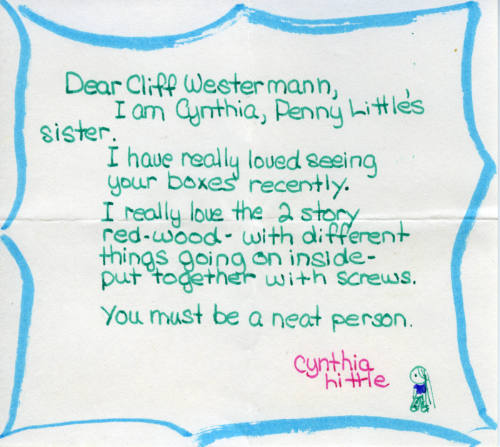 Dear Cliff Westermann,
I am Cynthia, Penny Little's
sister.
I have really loved seeing
your boxes recently.
I really love the 2 story
red-wood- with different
things going on inside-
put together with screws.
You must be a neat person.
Cynthia
Little